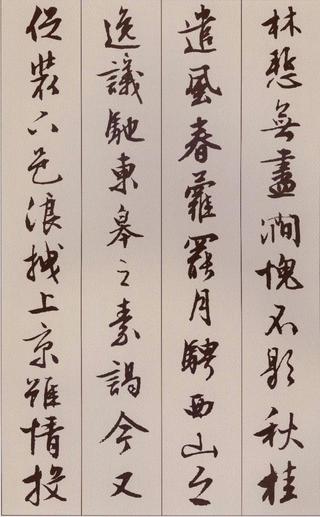 林慙無盡澗愧不歇秋桂
遣風春蘿罷月騁西山之
逸議馳東皋之素謁今又
促裝下邑浪拽上京雖情投